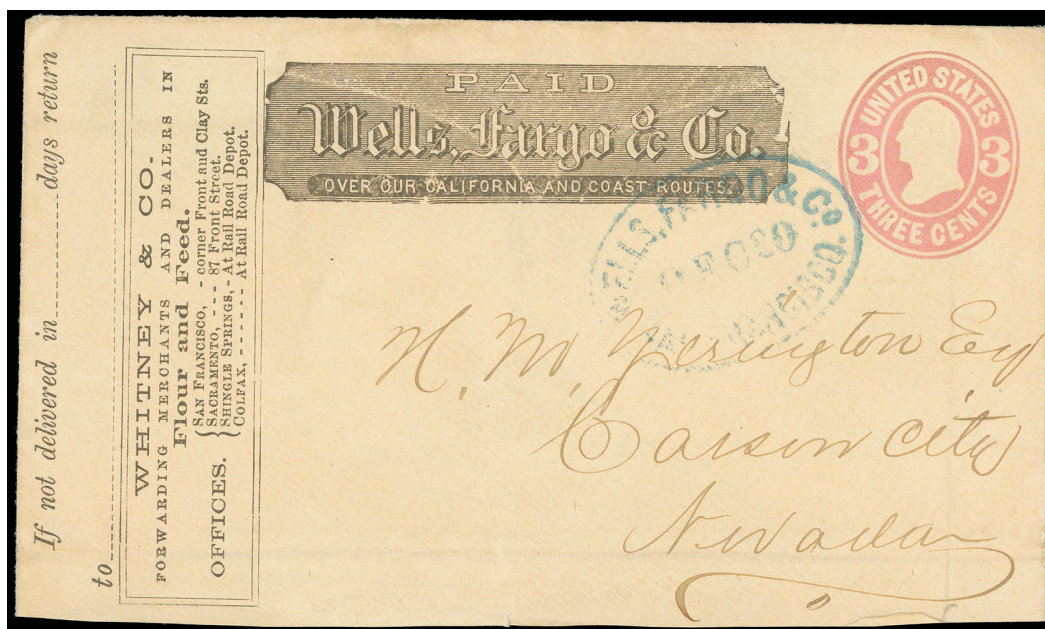 If not delivered in ........ days return
to
WHITNEY & CO.
FORWARDING MERCHANTS AND DEALERS IN
Flour and Feed.
OFFICES.
SAN FRANCISCO, - corner Front and Clay Sts.
SACRAMENTO, - - - 87 Front Street.
SHINGLE SPRINGS, - At Rail Road Depot.
COLFAX, - - - - - - At Rail Road Depot.
PAID
Wells, Fargo & Co.
OVER OUR CALIFORNIA AND COAST ROUTES.
UNITED STATES
3 3
THREE CENTS
WELLS, FARGO & Co.
SAN FRANCISCO
H. M. Yerington Esq
Carson City
Nevada